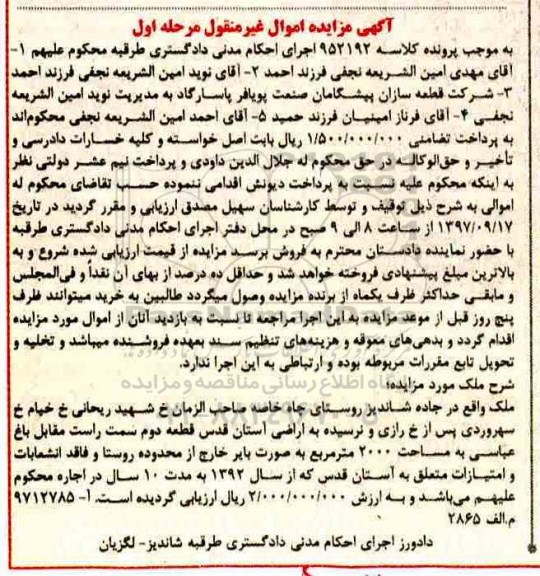 آگهی مزایده اموال غیرمنقول مرحله اول
به موجب پرونده کلاسه ۹۵۲۱۹۲ اجرای احکام مدنی دادگستری طرقبه محکوم علیهم ۱-
آقای مهدی امین الشریعه نجفی فرزند احمد ۲- آقای نوید امین الشریعه نجفی فرزند احمد
۳- شرکت قطعه سازان پیشگامان صنعت پویافر پاسارگاد به مدیریت نوید امین الشریعه
نجفی ۴- آقای فرناز امینیان فرزند حمید ۵- آقای احمد امین الشریعه نجفی محکوم‌اند
به پرداخت تضامنی ۱/۵۰۰/۰۰۰/۰۰۰ ریال بابت اصل خواسته و کلیه خسارات دادرسی و
تأخیر و حق‌الوکاله در حق محکوم له جلال الدین داودی و پرداخت نیم عشر دولتی نظر
به اینکه محکوم علیه نسبت به پرداخت دیونش اقدامی ننموده حسب تقاضای محکوم له
اموالی به شرح ذیل توقیف و توسط کارشناسان سهیل مصدق ارزیابی و مقرر گردید در تاریخ
۱۳۹۷/۰۹/۱۷ از ساعت ۸ الی ۹ صبح در محل دفتر اجرای احکام مدنی دادگستری طرقبه
با حضور نماینده دادستان محترم به فروش برسد مزایده از قیمت ارزیابی شده شروع و به
بالاترین مبلغ پیشنهادی فروخته خواهد شد و حداقل ده درصد از بهای آن نقداً و فی‌المجلس
و مابقی حداکثر ظرف یکماه از برنده مزایده وصول میگردد طالبین به خرید میتوانند ظرف
پنج روز قبل از موعد مزایده به این اجرا مراجعه تا نسبت به بازدید آنان از اموال مورد مزایده
اقدام گردد و بدهی‌های معوقه و هزینه‌های تنظیم سند بعهده فروشنده میباشد و تخلیه و
تحویل تابع مقررات مربوطه بوده و ارتباطی به این اجرا ندارد.
شرح ملک مورد مزایده:
ملک واقع در جاده شاندیز روستای چاه‌خاصه صاحب الزمان خ شهید ریحانی خ خیام خ
سهروردی پس از خ رازی و نرسیده به اراضی آستان قدس قطعه دوم سمت راست مقابل باغ
عباسی به مساحت ۲۰۰۰ مترمربع به صورت بایر خارج از محدوده روستا و فاقد انشعابات
و امتیازات متعلق به آستان قدس که از سال ۱۳۹۲ به مدت ۱۰ سال در اجاره محکوم
علیهم می‌باشد و به ارزش ۲/۰۰۰/۰۰۰/۰۰۰ ریال ارزیابی گردیده است. آ- ۹۷۱۲۷۸۵
م.الف ۲۸۶۵
دادورز اجرای احکام مدنی دادگستری طرقبه شاندیز- لگزیان